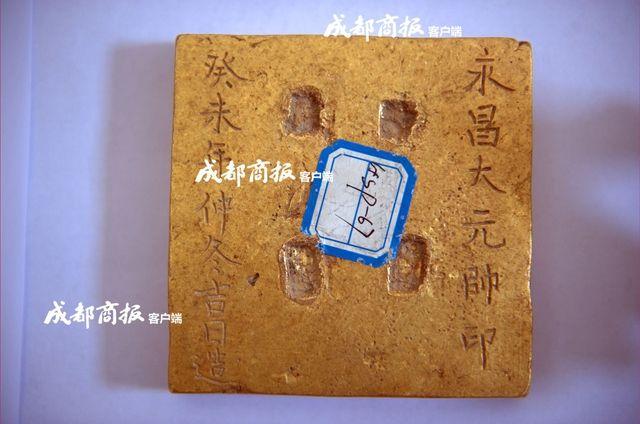 成都商报客户端
永昌大元帥印
癸未年仲冬吉日造
成都商报客户端
成都商报客户端